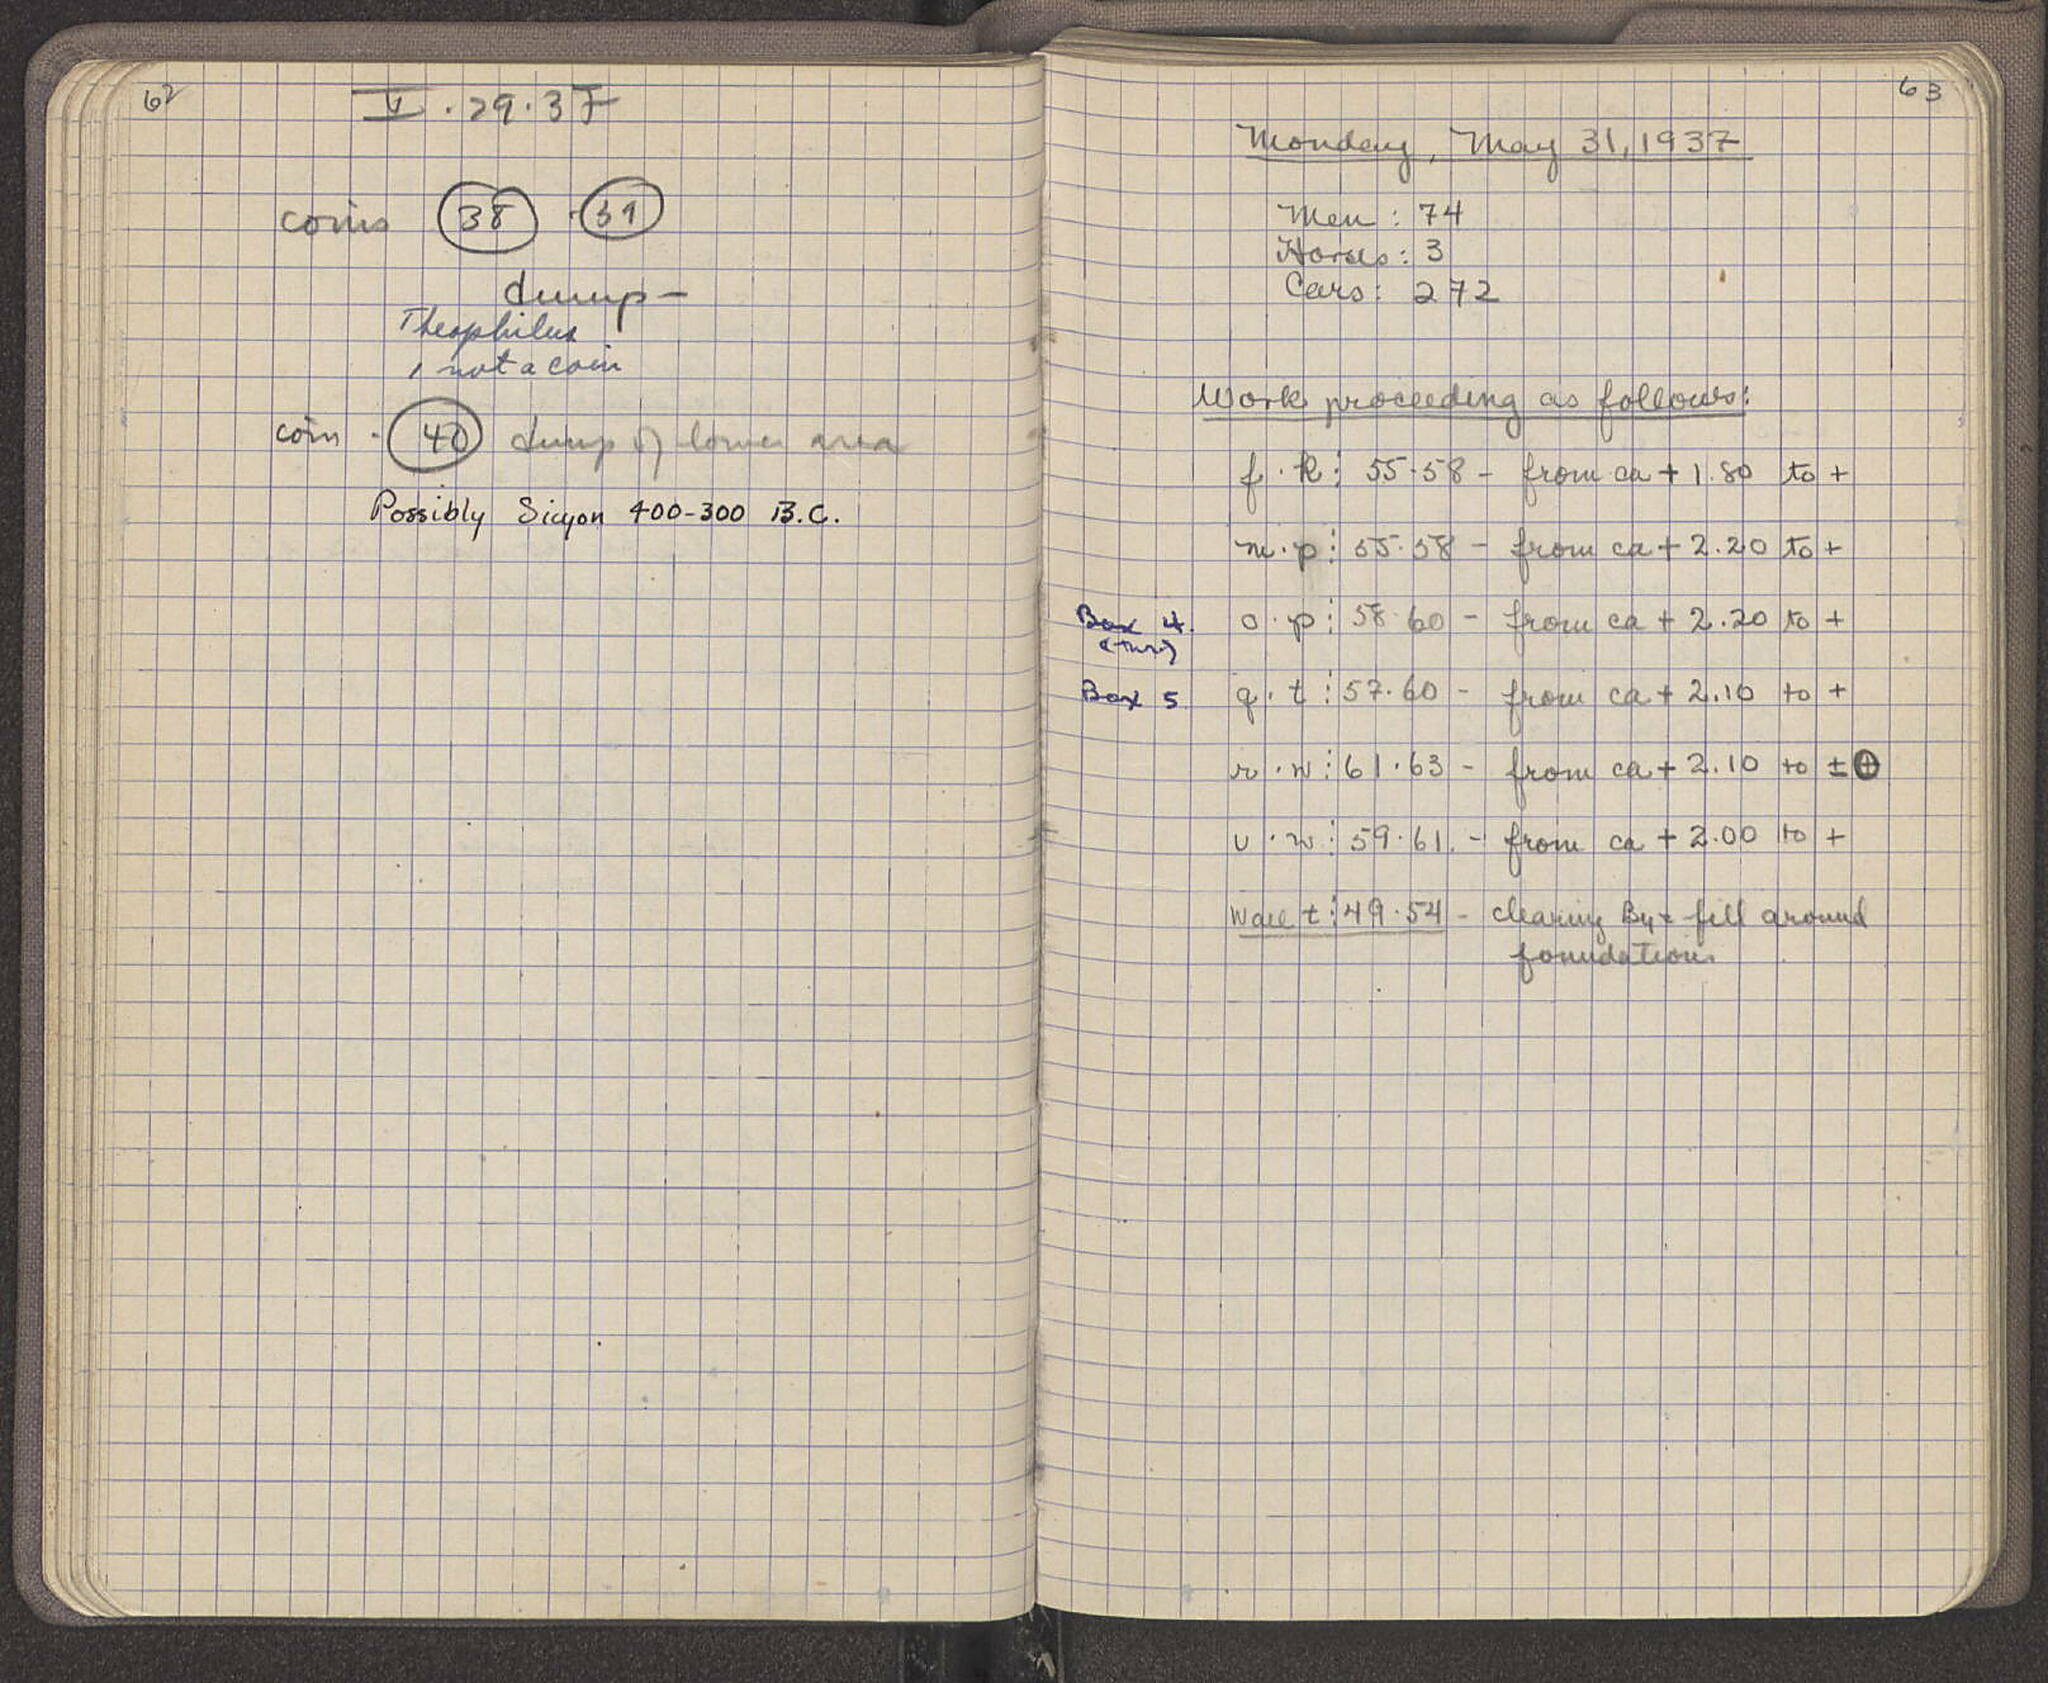 62
V · 29 · 37
coins 38 · 39
dump –
Theophilus
1 not a coin
coin · 40 dump of lower area
Possibly Sicyon 400-300 B.C.
63
Monday, May 31, 1937
Men : 74
Horses : 3
Cars : 272
Work proceeding as follows:
f · k : 55·58 – from ca + 1.80 to +
m · p : 55·58 – from ca + 2.20 to +
Box 4. o · p : 58·60 – from ca + 2.20 to +
Box 5 q · t : 57·60 – from ca + 2.10 to +
r · w : 61·63 – from ca + 2.10 to ±
u · w : 59·61. – from ca + 2.00 to +
Wall t : 49·54 – clearing Byz fill around
foundations